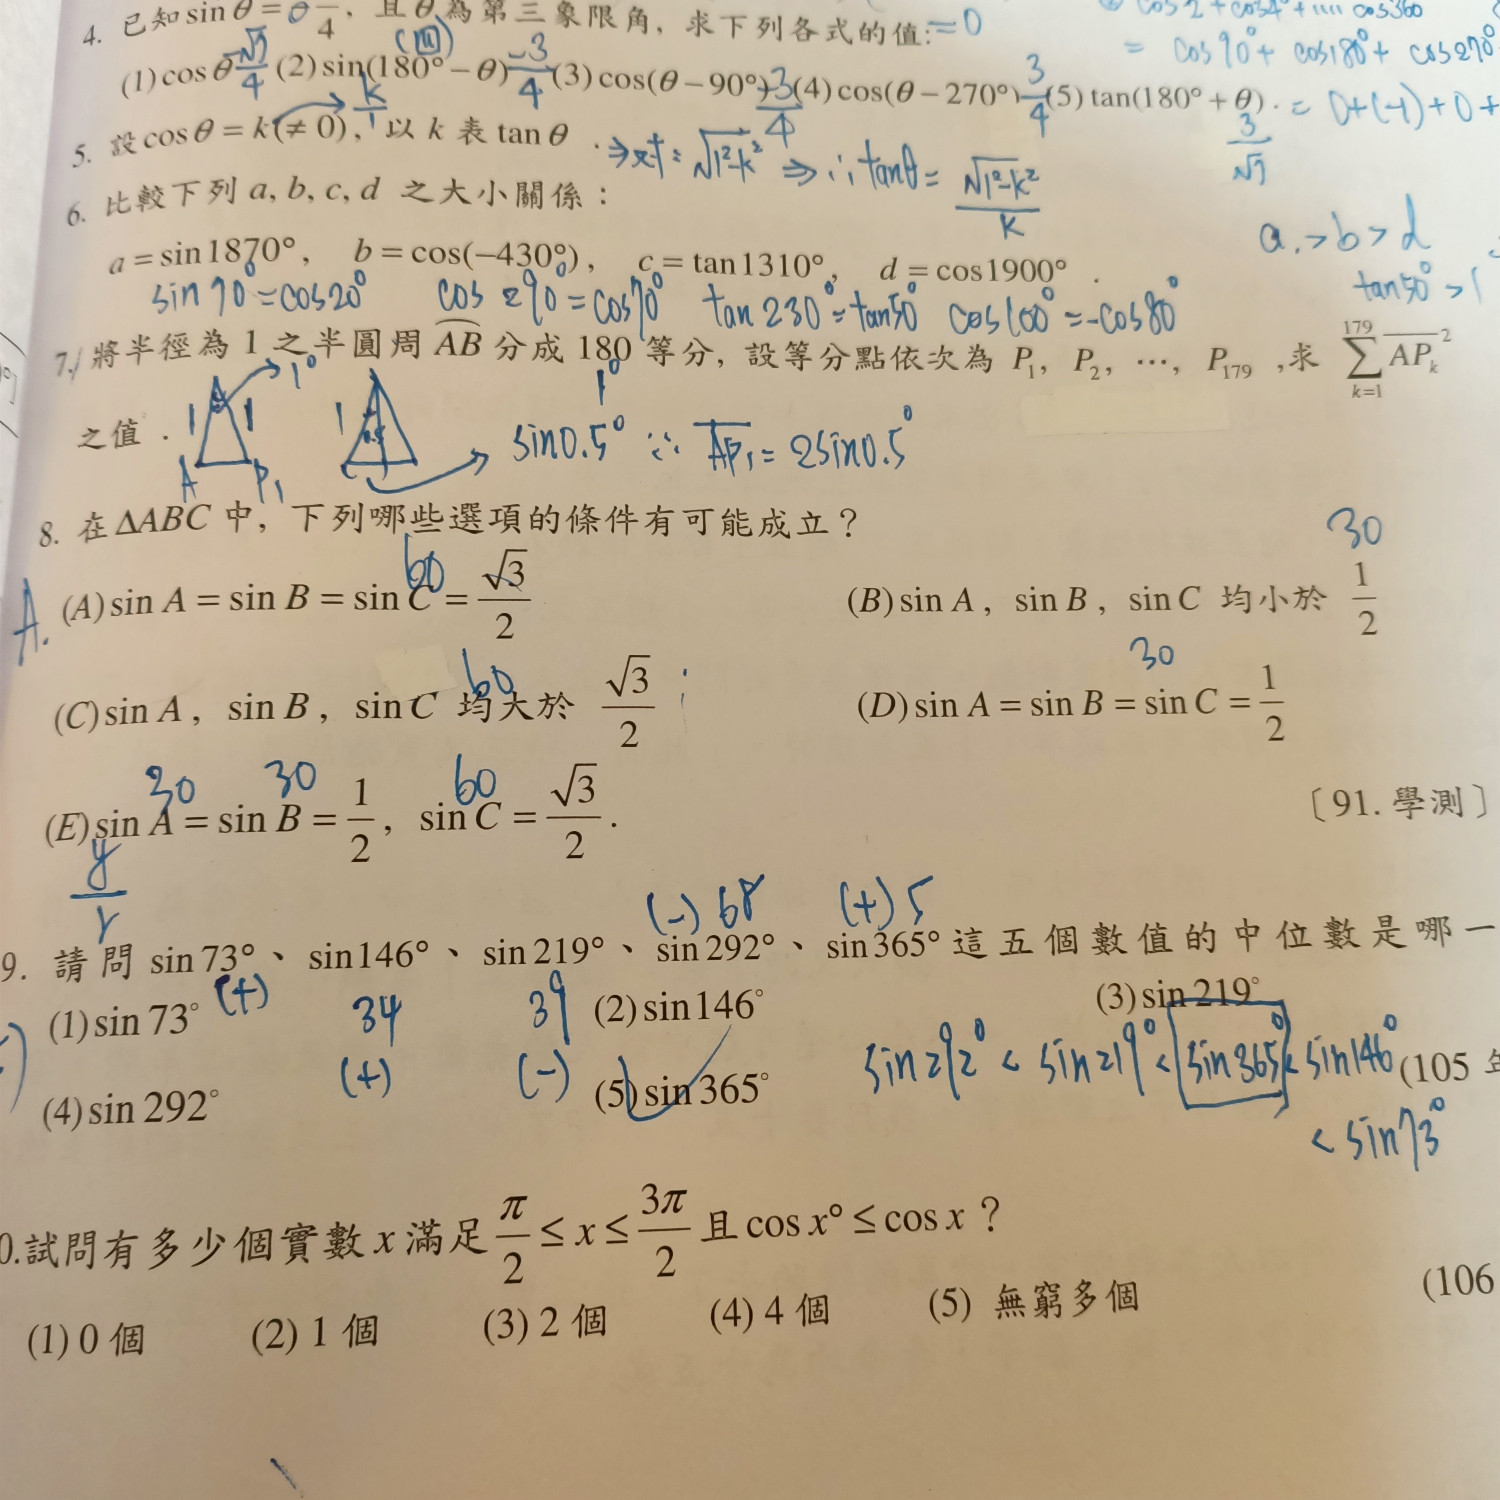 4. 已知 sin θ = 4, 且 θ 為第三象限角, 求下列各式的值: =0
= cos90°+ cos180°+ cos270°
(1) cos θ √7/4 (2) sin(180° − θ) −3/4 (3) cos(θ − 90°) 3/4 (4) cos(θ − 270°) 3/4 (5) tan(180° + θ). 3/√7
= 0+(-1)+0+
5. 設 cos θ = k (≠ 0), 以 k 表 tan θ . ⇒ 對 = √1²-k² ⇒ ∴ tanθ = √1²-k²/k
6. 比較下列 a, b, c, d 之大小關係：
a > b > d
a = sin1870°, b = cos(−430°), c = tan1310°, d = cos1900° .
tan50° > 1
sin 70° = cos20° cos 290° = cos70° tan 230° = tan50° cos100° = -cos80°
7. 將半徑為 1 之半圓周 AB 分成 180 等分, 設等分點依次為 P₁, P₂, …, P₁₇₉ ,求 ∑ₖ₌₁¹⁷⁹ APₖ²
1° 1°
之值 . 1 1 1 0.5 sin0.5° ∴ AP₁ = 2sin0.5°
A P₁
8. 在 ΔABC 中, 下列哪些選項的條件有可能成立？
60 30
A. (A) sin A = sin B = sin C = √3/2 (B) sin A , sin B , sin C 均小於 1/2
60 30
(C) sin A , sin B , sin C 均大於 √3/2 (D) sin A = sin B = sin C = 1/2
30 30 60
(E) sin A = sin B = 1/2 , sin C = √3/2 . 〔91. 學測〕
y/r
(-) 68 (+) 5
9. 請問 sin 73°、sin146°、sin 219°、sin 292°、sin 365° 這五個數值的中位數是哪一
(+) 34 39
(1) sin 73° (2) sin146° (3) sin 219°
(+) (-)
sin292° < sin219° < sin365° < sin146°
(4) sin 292° (5) sin 365° (105
< sin73°
0.試問有多少個實數 x 滿足 π/2 ≤ x ≤ 3π/2 且 cos x° ≤ cos x？
(1) 0 個 (2) 1 個 (3) 2 個 (4) 4 個 (5) 無窮多個 (106